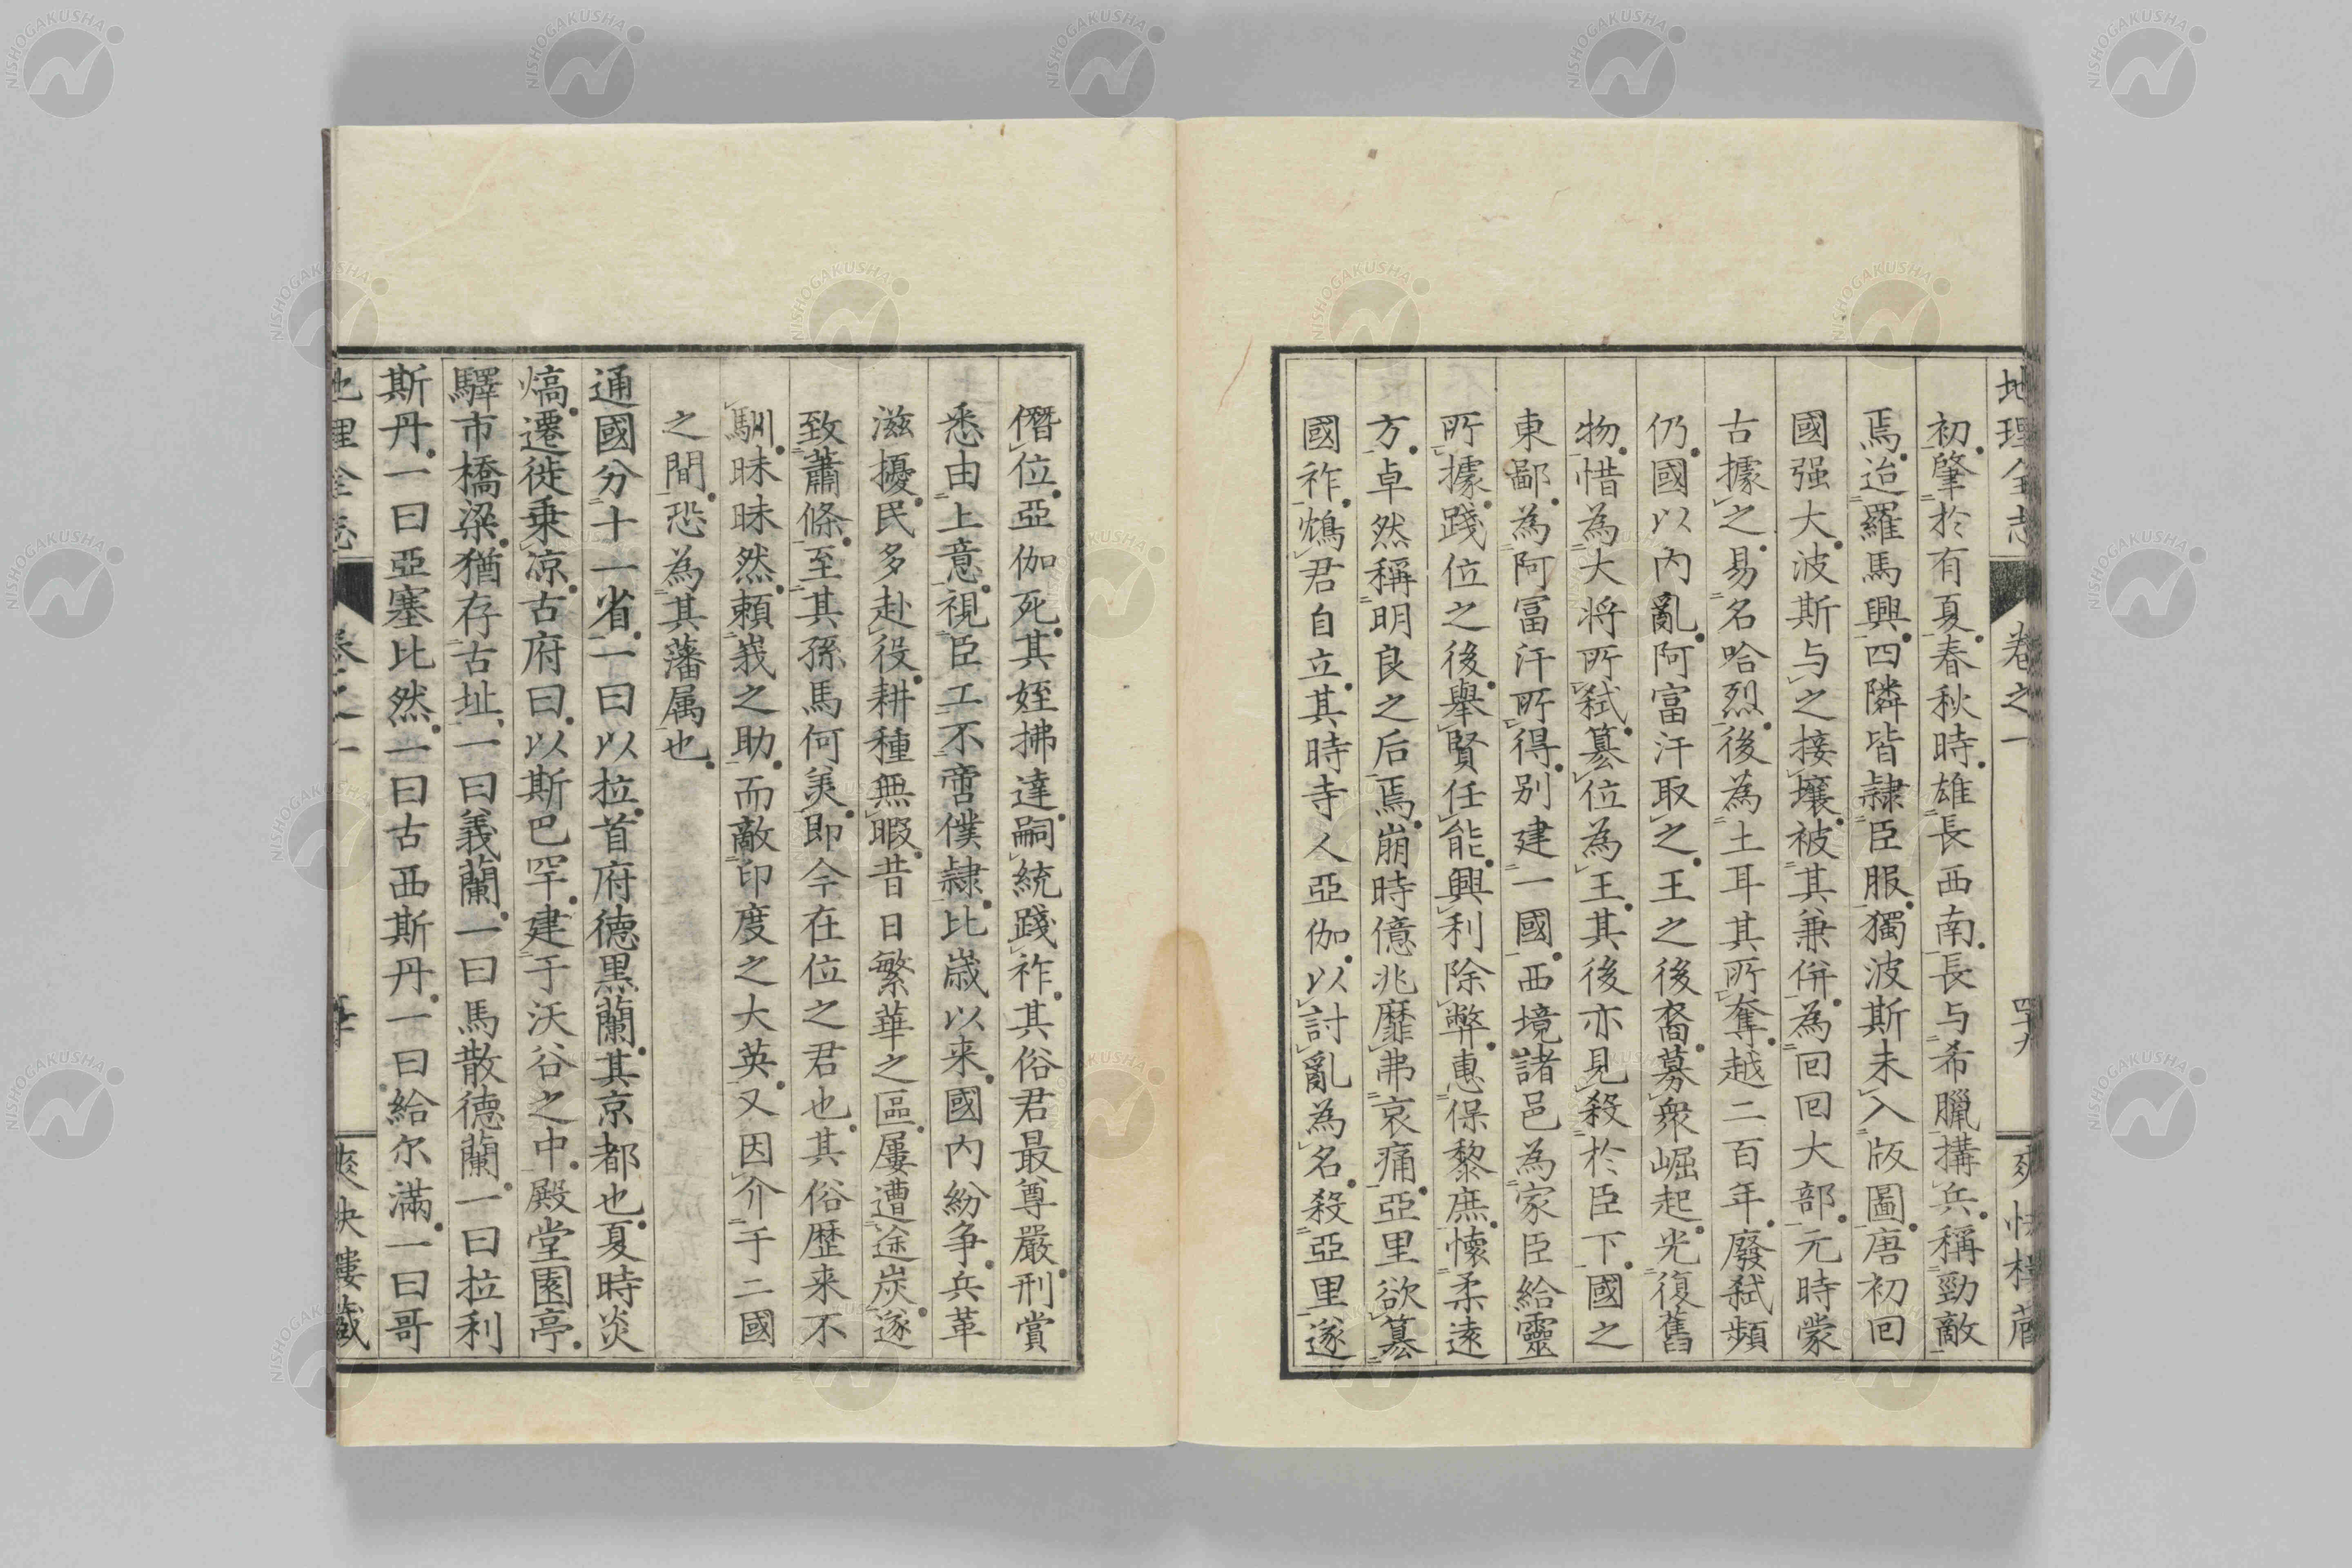 地理全志 卷之一 四十九 爽快樓藏
初。肇於有夏。春秋時。雄長西南。長与希臘搆兵。稱勁敵
焉。迨羅馬興。四隣皆隷臣服。獨波斯未入版圖。唐初回
國强大。波斯与之接壤。被其兼併。為回回大部。元時蒙
古據之。易名哈烈。後為土耳其所奪。越二百年。廢弑頻
仍。國以內亂。阿富汗取之。王之後裔。募衆崛起。光復舊
物。惜為大将所弑。篡位為王。其後亦見殺於臣下。國之
東鄙。為阿富汗所得。别建一國。西境諸邑為家臣給靈
所據。踐位之後。舉賢任能。興利除弊。惠保黎庶。懷柔遠
方。卓然稱明良之后焉。崩時億兆靡弗哀痛。亞里欲篡
國祚。鴆君自立。其時寺人亞伽。以討亂為名。殺亞里遂
僭位。亞伽死。其姪拂達。嗣統踐祚。其俗君最尊嚴。刑賞
悉由上意。視臣工不啻僕隷。比歲以来。國內紛争。兵革
滋擾。民多赴役。耕種無暇。昔日繁華之區。屢遭途炭。遂
致蕭條。至其孫馬何美。即今在位之君也。其俗歴来不
馴。昧昧然。頼峩之助。而敵印度之大英。又因介于二國
之間。恐為其藩属也。
通國分十一省。一曰以拉。首府德黒蘭。其京都也。夏時炎
熇。遷徙乗凉。古府曰。以斯巴罕。建于沃谷之中。殿堂園亭。
驛市橋梁。猶存古址。一曰義蘭。一曰馬散德蘭。一曰拉利
斯丹。一曰亞塞比然。一曰古西斯丹。一曰給尔滿。一曰哥
地理全志 卷之一 爽快樓藏
NISHOGAKUSHA